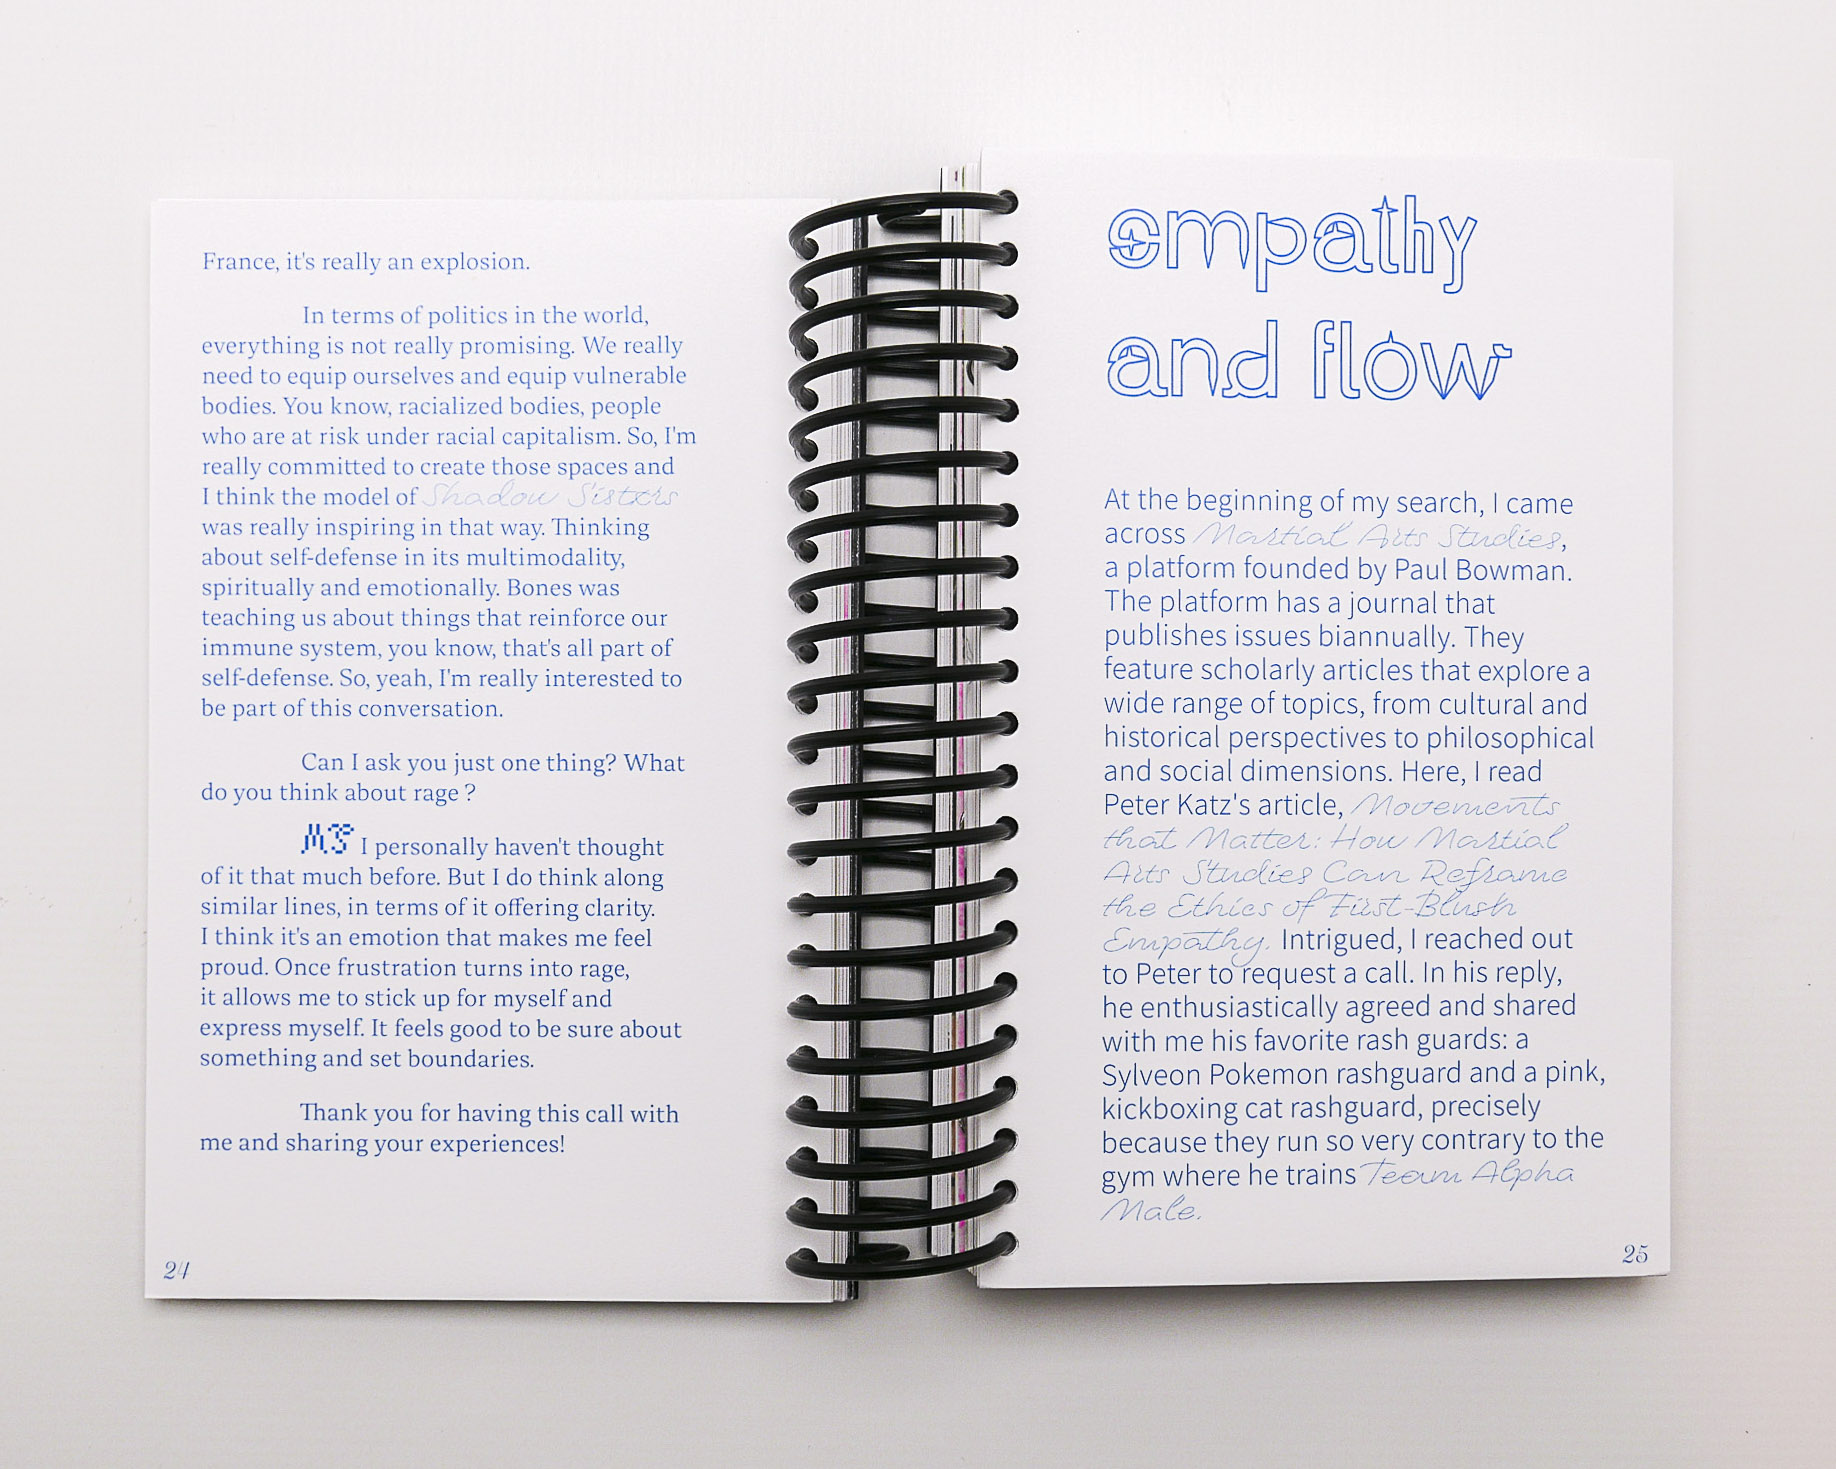 France, it's really an explosion.
In terms of politics in the world,
everything is not really promising. We really
need to equip ourselves and equip vulnerable
bodies. You know, racialized bodies, people
who are at risk under racial capitalism. So, I'm
really committed to create those spaces and
I think the model of Shadow Sisters
was really inspiring in that way. Thinking
about self-defense in its multimodality,
spiritually and emotionally. Bones was
teaching us about things that reinforce our
immune system, you know, that's all part of
self-defense. So, yeah, I'm really interested to
be part of this conversation.
Can I ask you just one thing? What
do you think about rage ?
MJ I personally haven't thought
of it that much before. But I do think along
similar lines, in terms of it offering clarity.
I think it's an emotion that makes me feel
proud. Once frustration turns into rage,
it allows me to stick up for myself and
express myself. It feels good to be sure about
something and set boundaries.
Thank you for having this call with
me and sharing your experiences!
24
empathy
and flow
At the beginning of my search, I came
across Martial Arts Studies,
a platform founded by Paul Bowman.
The platform has a journal that
publishes issues biannually. They
feature scholarly articles that explore a
wide range of topics, from cultural and
historical perspectives to philosophical
and social dimensions. Here, I read
Peter Katz's article, Movements
that Matter: How Martial
Arts Studies Can Reframe
the Ethics of First-Blush
Empathy. Intrigued, I reached out
to Peter to request a call. In his reply,
he enthusiastically agreed and shared
with me his favorite rash guards: a
Sylveon Pokemon rashguard and a pink,
kickboxing cat rashguard, precisely
because they run so very contrary to the
gym where he trains Team Alpha
Male.
25